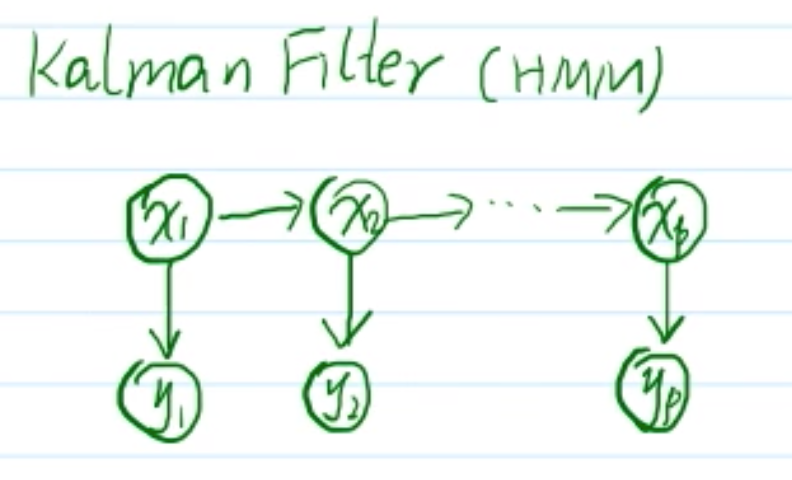 Kalman Filter (HMM)
x₁ → x₂ → ... → xₚ
y₁ y₂ yₚ